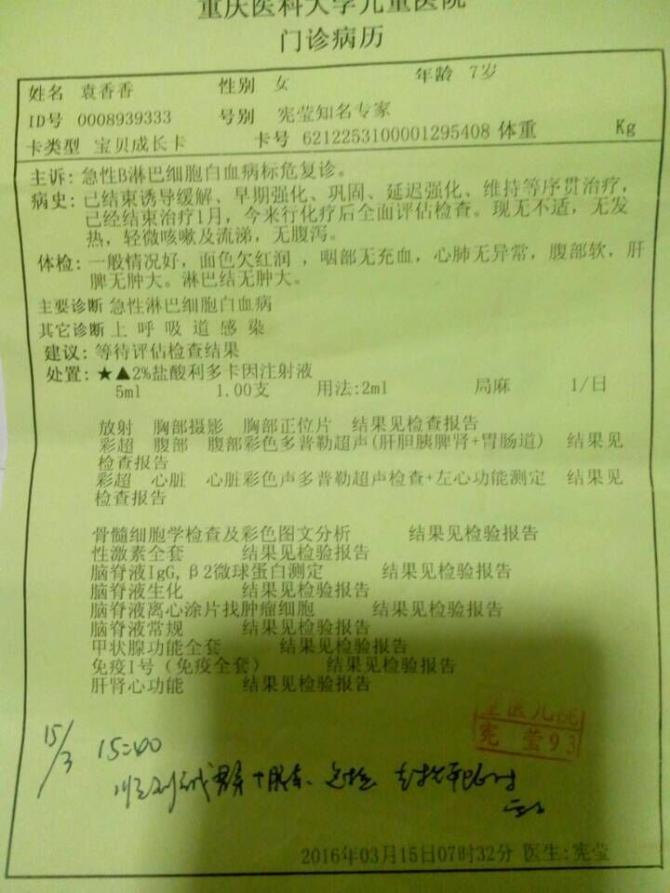 重庆医科大学儿童医院
门诊病历
姓名 袁香香 性别 女 年龄 7岁
ID号 0008939333 号别 宪莹知名专家
卡类型 宝贝成长卡 卡号 62122531000001295408 体重 Kg
主诉: 急性B淋巴细胞白血病标危复诊。
病史: 已结束诱导缓解、早期强化、巩固、延迟强化、维持等序贯治疗,
已经结束治疗1月，今来行化疗后全面评估检查。现无不适，无发
热，轻微咳嗽及流涕，无腹泻。
体检: 一般情况好，面色欠红润 ，咽部无充血，心肺无异常，腹部软，肝
脾无肿大。淋巴结无肿大。
主要诊断 急性淋巴细胞白血病
其它诊断 上呼吸道感染
建议: 等待评估检查结果
处置: ★▲2%盐酸利多卡因注射液
5ml 1.00支 用法:2ml 局麻 1/日
放射 胸部摄影 胸部正位片 结果见检查报告
彩超 腹部 腹部彩色多普勒超声(肝胆胰脾肾+胃肠道) 结果见
检查报告
彩超 心脏 心脏彩色声多普勒超声检查+左心功能测定 结果见
检查报告
骨髓细胞学检查及彩色图文分析 结果见检验报告
性激素全套 结果见检验报告
脑脊液IgG,β2微球蛋白测定 结果见检验报告
脑脊液生化 结果见检验报告
脑脊液离心涂片找肿瘤细胞 结果见检验报告
脑脊液常规 结果见检验报告
甲状腺功能全套 结果见检验报告
免疫I号（免疫全套） 结果见检验报告
肝肾心功能 结果见检验报告
宪 莹93
15/3 15:00
2016年03月15日07时32分 医生:宪莹